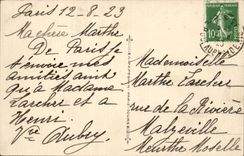 Paris 12-8-23
Ma chère Marthe
De Paris je
t'envoie mes
amitiés ainsi
qu'à Madame
Larcher et à
Henri.
Vve Aubry
Mademoiselle
Marthe Larcher
rue de la Rivière
Malzeville
Meurthe Moselle
10